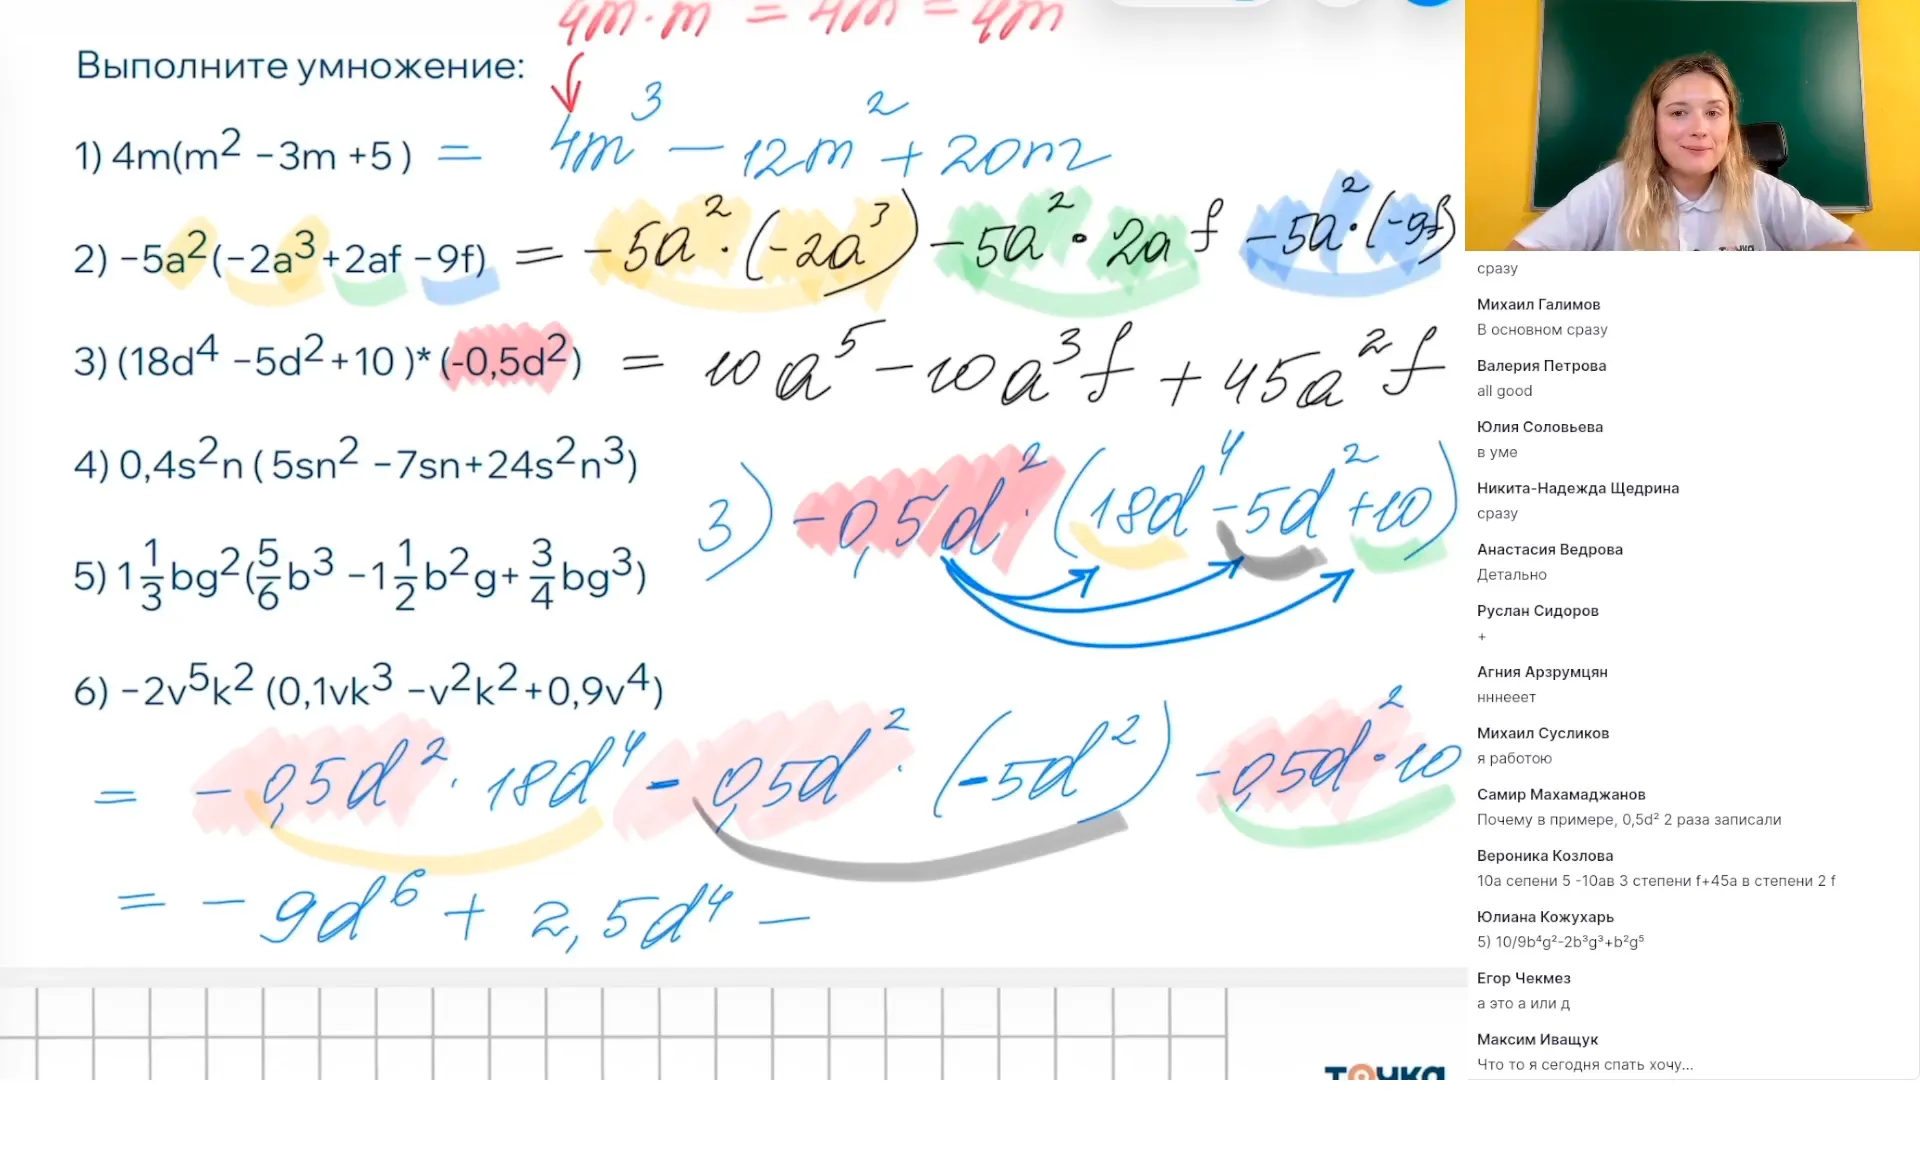 4m·m = 4m = 4m
Выполните умножение:
1) 4m(m² −3m +5) = 4m³ − 12m² + 20m
2) −5a²(−2a³+2af −9f) = −5a²·(−2a³) −5a²·2af −5a²·(−9f)
3) (18d⁴ −5d²+10 )*(-0,5d²) = 10a⁵ − 10a³f + 45a²f
4) 0,4s²n ( 5sn² −7sn+24s²n³)
3) −0,5d²·(18d⁴−5d²+10)
5) 1 1/3 bg²(5/6 b³ −1 1/2 b²g+ 3/4 bg³)
6) −2v⁵k² (0,1vk³ −v²k²+0,9v⁴)
= −0,5d²·18d⁴ − 0,5d²·(−5d²) −0,5d²·10
= −9d⁶ + 2,5d⁴ −
точка
сразу
Михаил Галимов
В основном сразу
Валерия Петрова
all good
Юлия Соловьева
в уме
Никита-Надежда Щедрина
сразу
Анастасия Ведрова
Детально
Руслан Сидоров
+
Агния Арзрумцян
нннееет
Михаил Сусликов
я работою
Самир Махамаджанов
Почему в примере, 0,5d² 2 раза записали
Вероника Козлова
10а сепени 5 -10ав 3 степени f+45а в степени 2 f
Юлиана Кожухарь
5) 10/9b⁴g²-2b³g³+b²g⁵
Егор Чекмез
а это а или д
Максим Иващук
Что то я сегодня спать хочу...